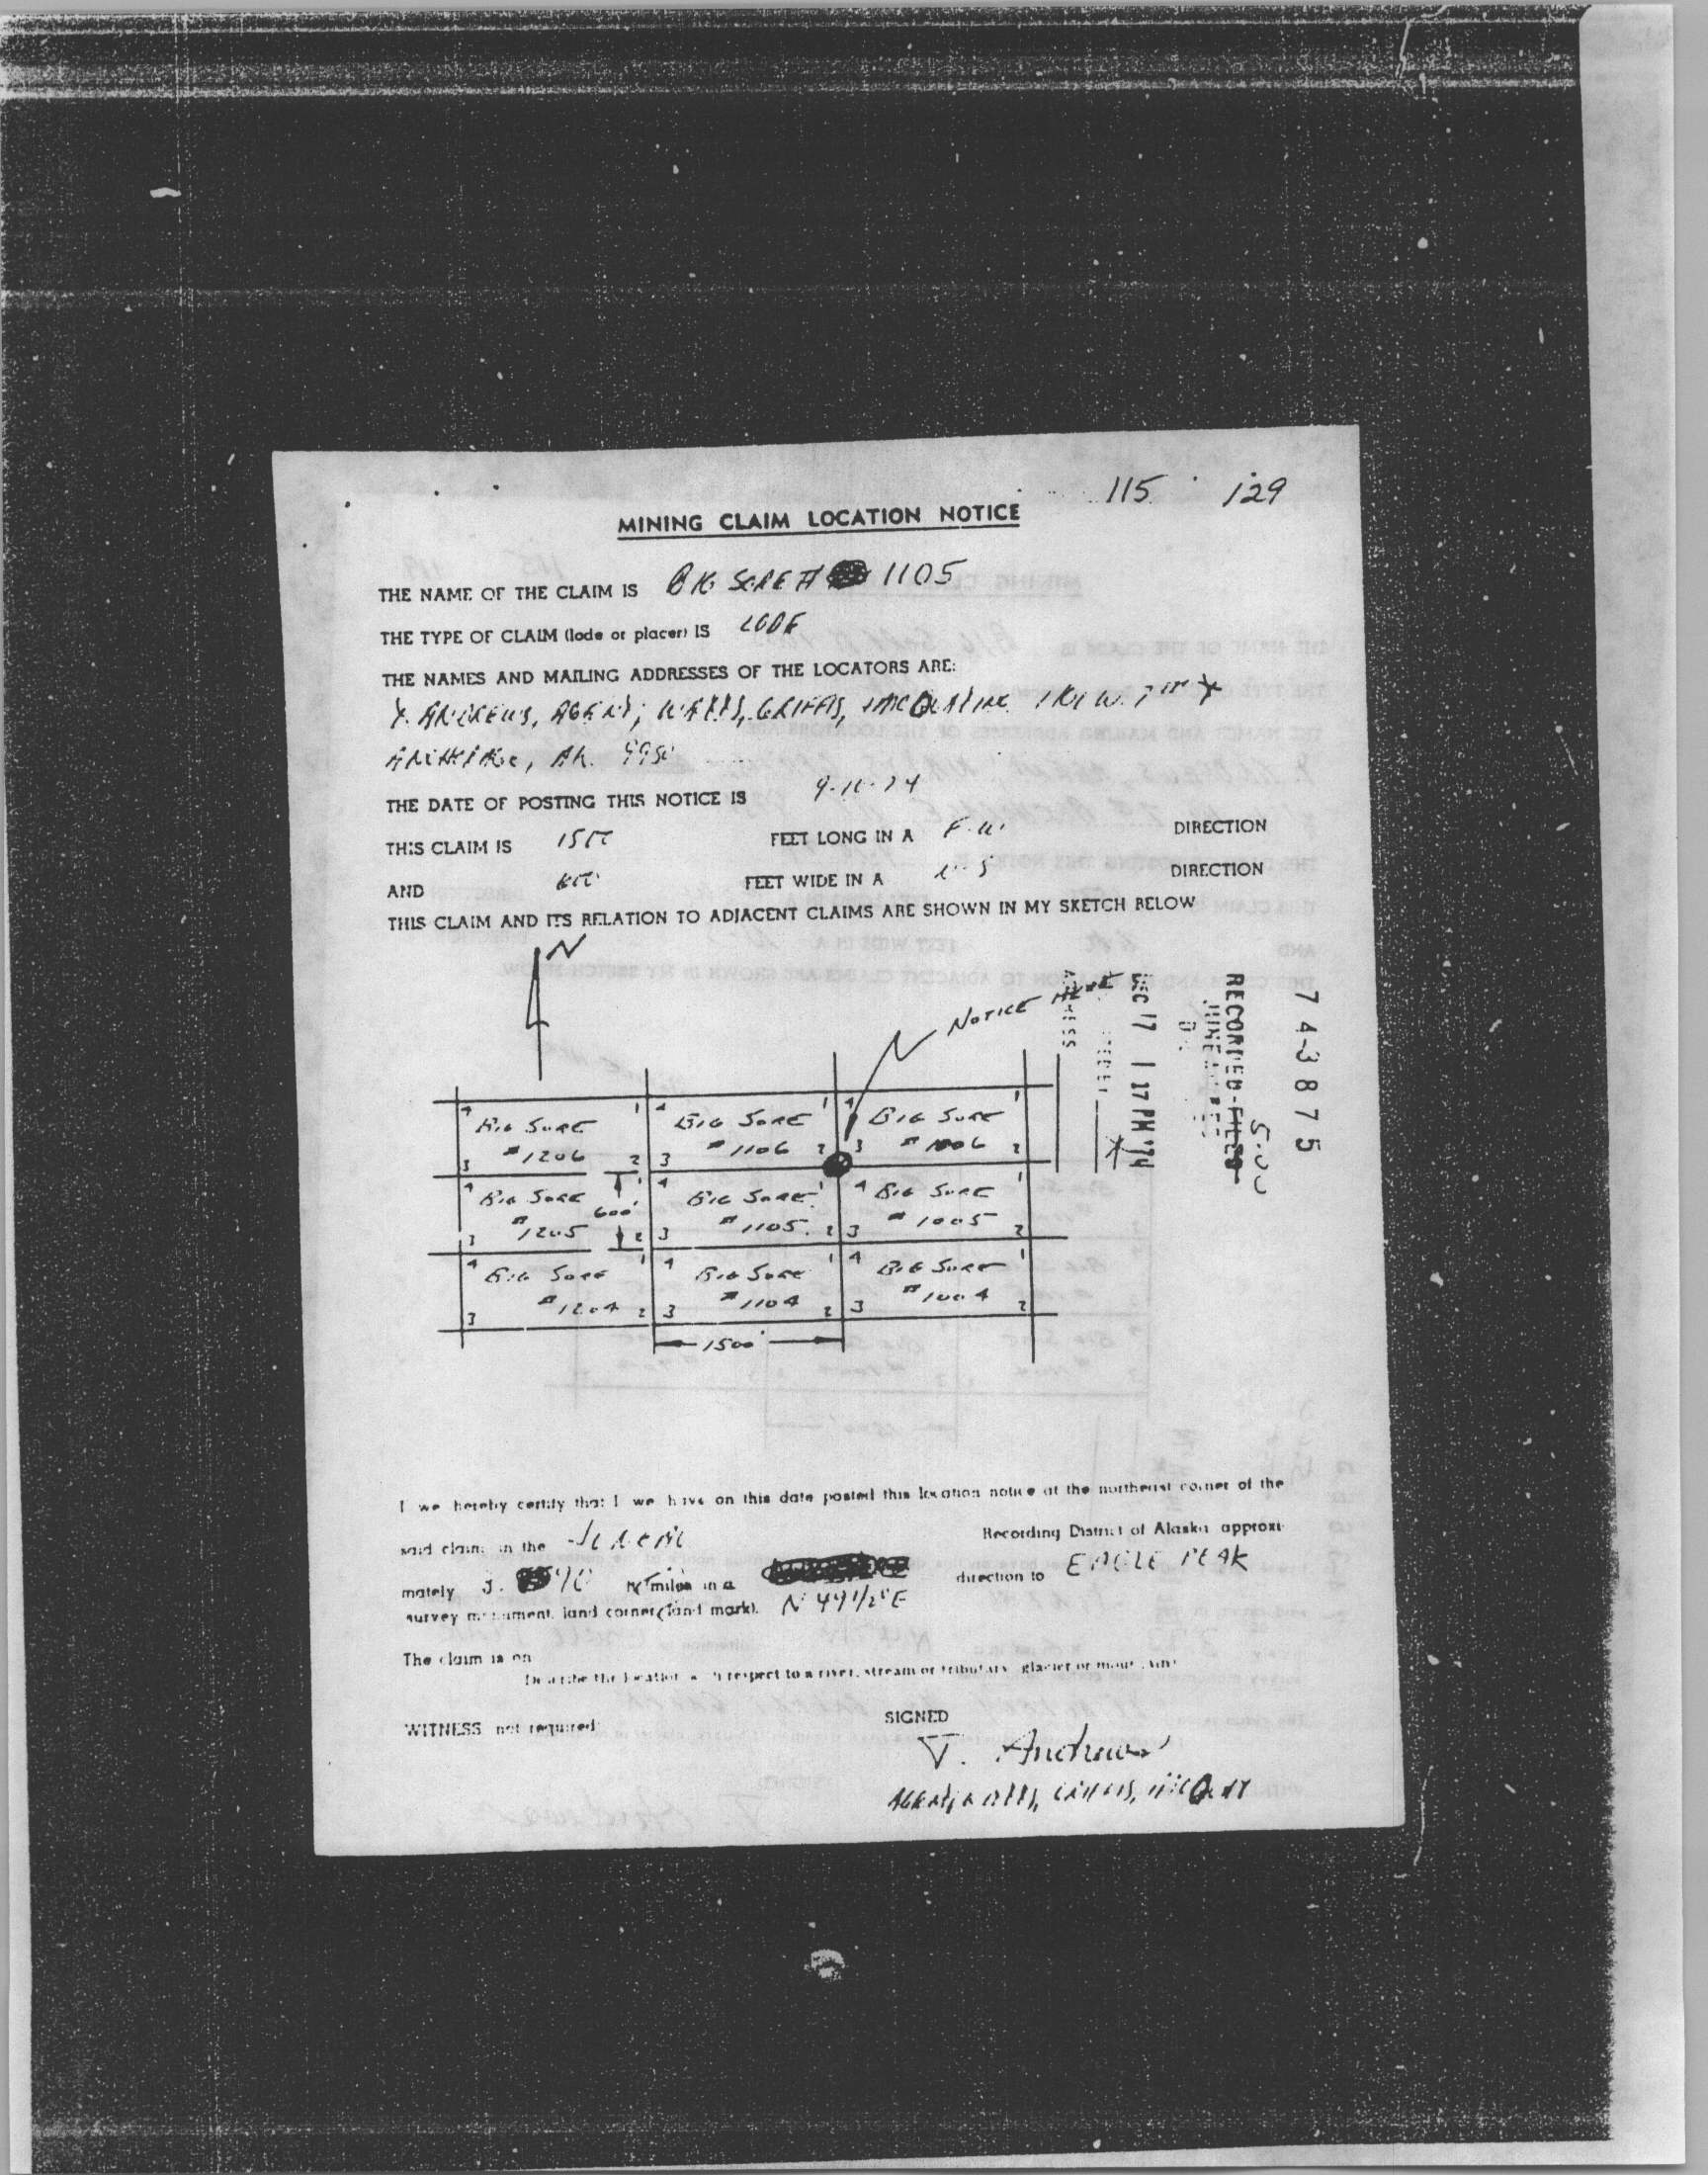 115 129
MINING CLAIM LOCATION NOTICE
THE NAME OF THE CLAIM IS BIG SORE # 1105
THE TYPE OF CLAIM (lode or placer) IS LODE
THE NAMES AND MAILING ADDRESSES OF THE LOCATORS ARE:
ANDREWS, AGENT, WATTS, GRIFFIS, W. 7TH
AK.
THE DATE OF POSTING THIS NOTICE IS
THIS CLAIM IS 1500 FEET LONG IN A E-W DIRECTION
AND 600 FEET WIDE IN A N-S DIRECTION
THIS CLAIM AND ITS RELATION TO ADJACENT CLAIMS ARE SHOWN IN MY SKETCH BELOW
N
NOTICE HERE
4 BIG SORE 1
#1206
3 2
4 BIG SORE 1
#1106
3 2
4 BIG SORE 1
#1006
3 2
4 BIG SORE 1
#1205
3 2
600'
4 BIG SORE 1
#1105
3 2
4 BIG SORE 1
#1005
3 2
4 BIG SORE 1
#1204
3 2
4 BIG SORE 1
#1104
3 2
4 BIG SORE 1
#1004
3 2
1500'
74-3875
5.00
RECORDED-FILED
DEC 17 1 17 PM '74
I we hereby certify that I we have on this date posted this location notice at the northeast corner of the
said claim in the Recording District of Alaska approxi-
mately miles in a direction to EAGLE PEAK
survey monument, land corner (land mark). N 49 1/2° E
The claim is on
Describe the location with respect to a river, stream or tributary, glacier or mountain
WITNESS not required SIGNED
Andrews